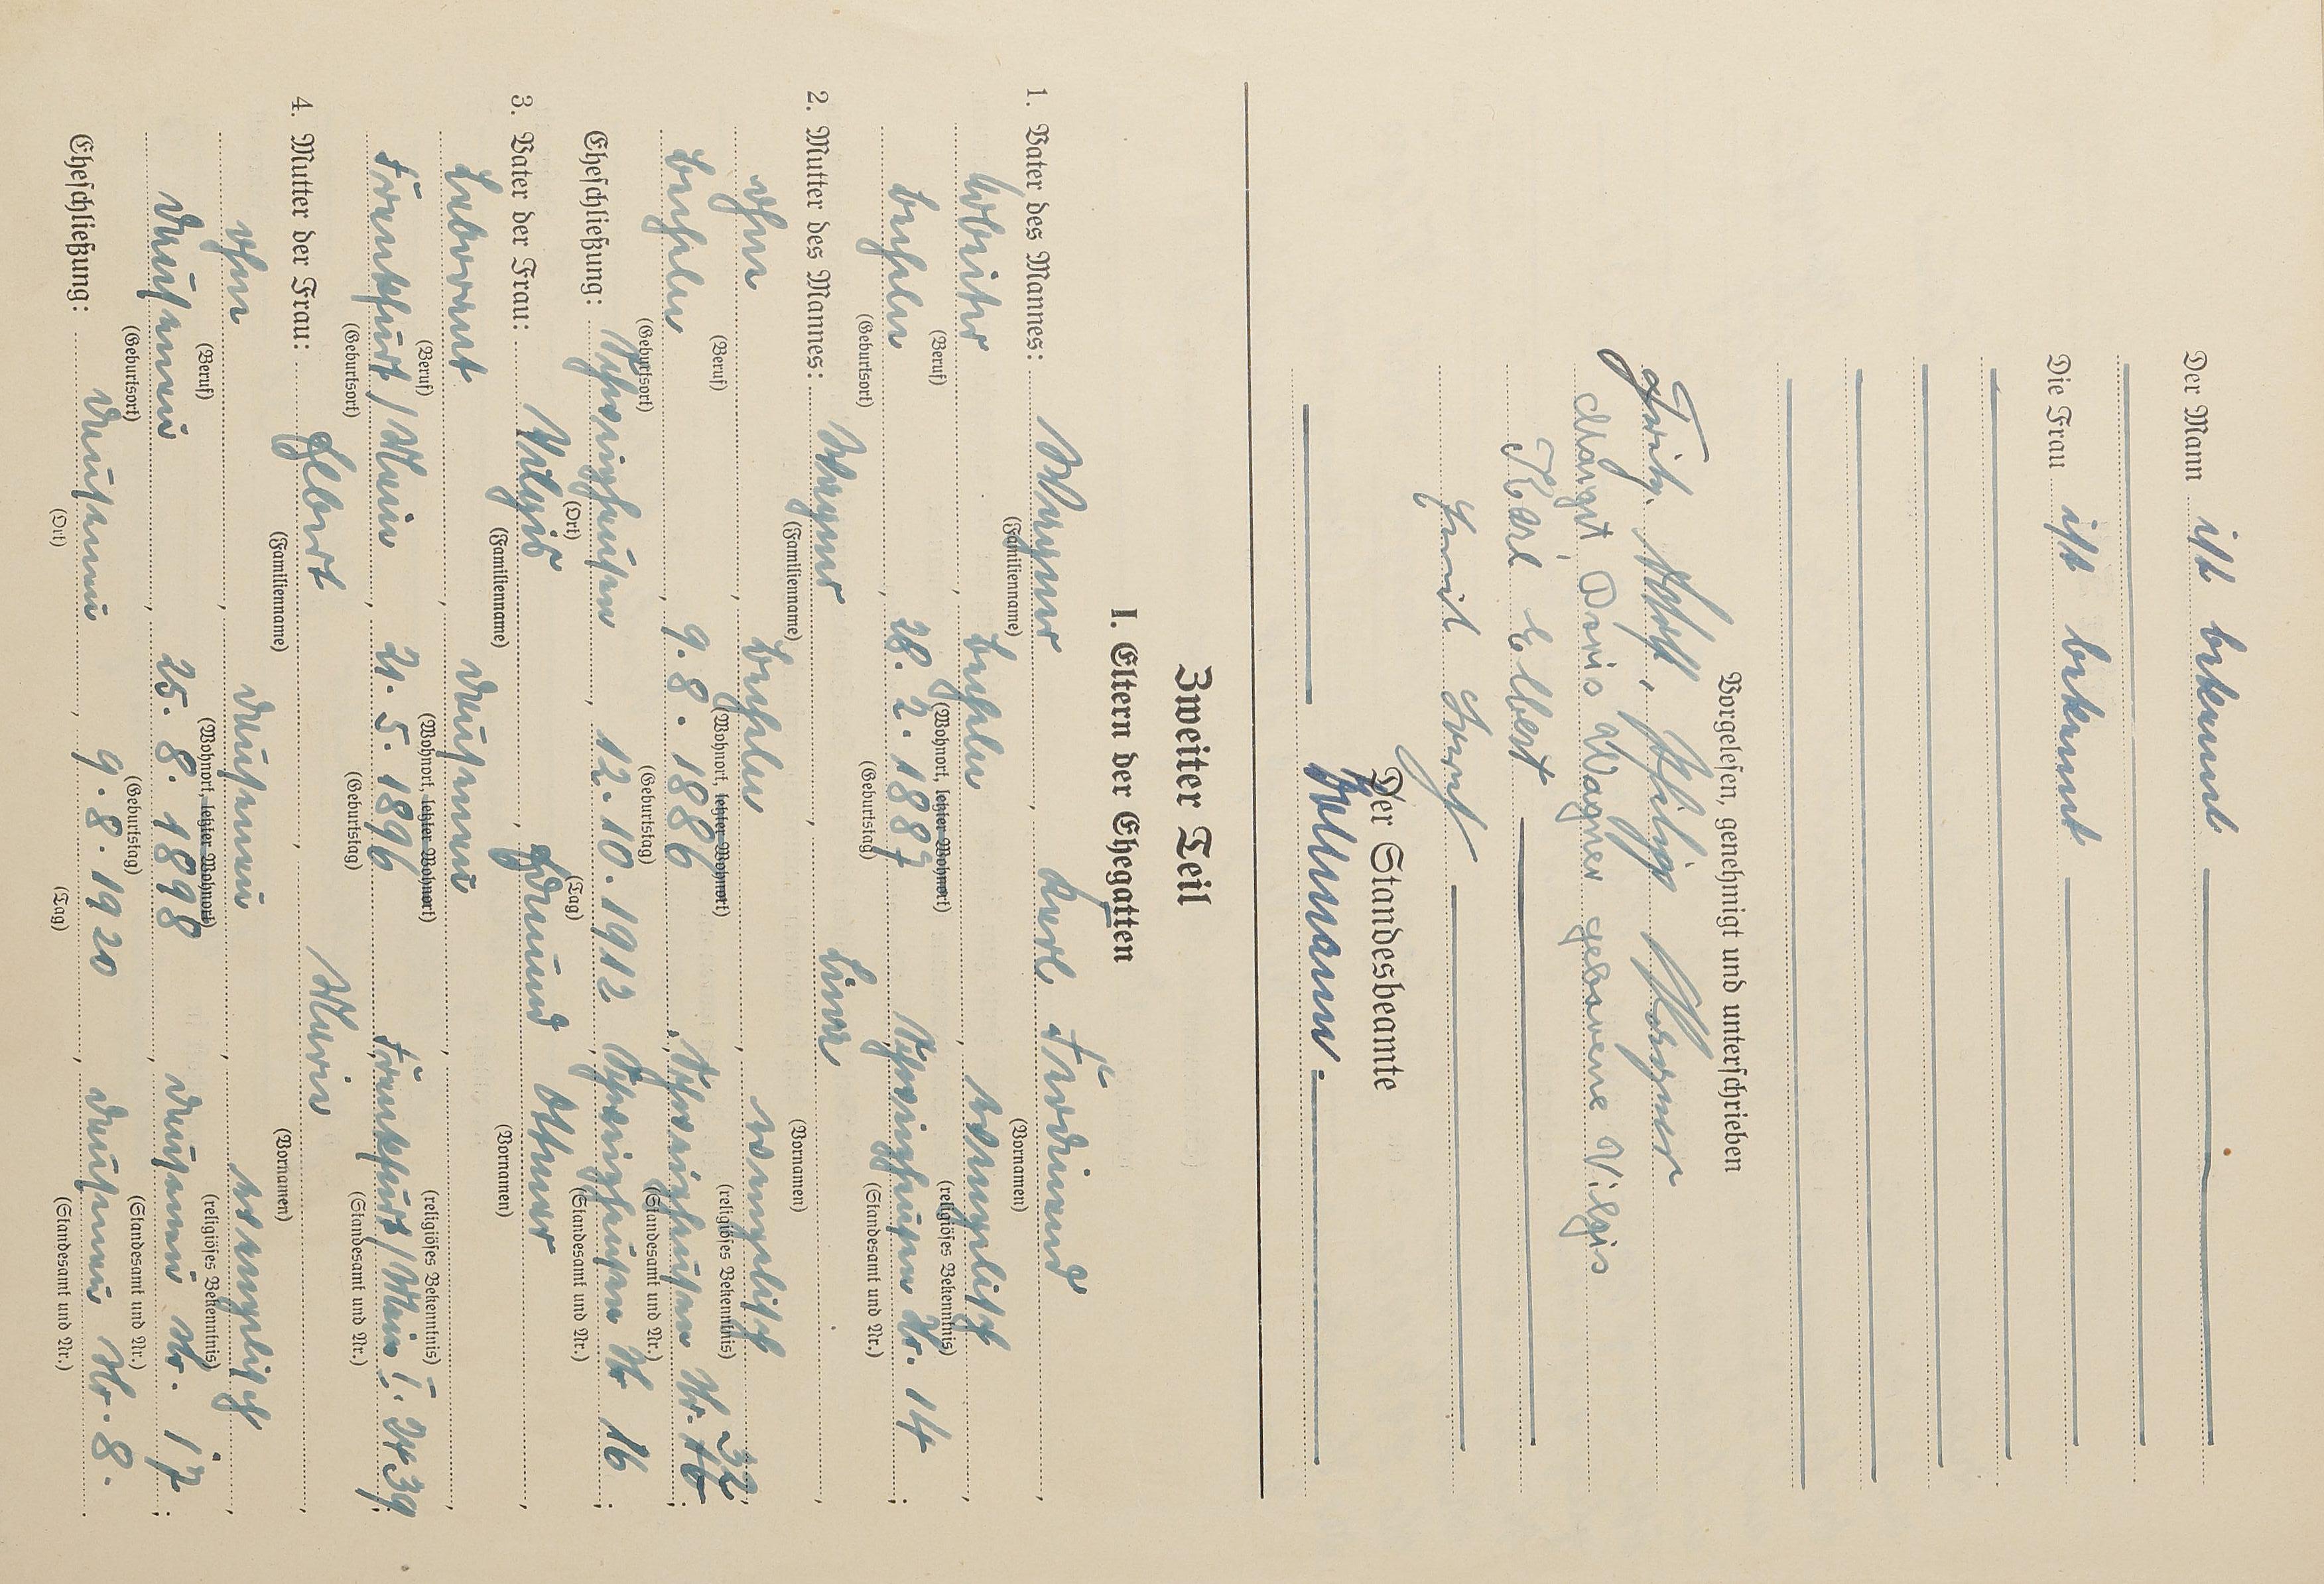 Der Mann ist bekannt
Die Frau ist bekannt
Vorgelesen, genehmigt und unterschrieben
Fritz Adolf Philipp Wagner
Margit Doris Wagner geborene Vilgis
Karl Elbert
Der Standesbeamte
Zweiter Teil
I. Eltern der Ehegatten
1. Vater des Mannes: Wagner, Karl Ferdinand,
(Familienname) (Vornamen)
Arbeiter, evangelisch,
(Beruf) (Wohnort, letzter Wohnort) (religiöses Bekenntnis)
28. 2. 1887, Nr. 14;
(Geburtsort) (Geburtstag) (Standesamt und Nr.)
2. Mutter des Mannes: Wagner,
(Familienname) (Vornamen)
ohne, evangelisch,
(Beruf) (Wohnort, letzter Wohnort) (religiöses Bekenntnis)
9. 8. 1886, Nr. 16 32;
(Geburtsort) (Geburtstag) (Standesamt und Nr.)
Eheschließung: 12. 10. 1912 Nr 16;
(Ort) (Tag) (Standesamt und Nr.)
3. Vater der Frau: Vilgis, Othmar,
(Familienname) (Vornamen)
Laborant, Dausenau,
(Beruf) (Wohnort, letzter Wohnort) (religiöses Bekenntnis)
Frankfurt/Main, 21. 5. 1896, Frankfurt/Main I. 2439;
(Geburtsort) (Geburtstag) (Standesamt und Nr.)
4. Mutter der Frau: Elbert, Maria,
(Familienname) (Vornamen)
ohne, Dausenau, evangelisch,
(Beruf) (Wohnort, letzter Wohnort) (religiöses Bekenntnis)
Dausenau, 25. 8. 1898, Dausenau Nr. 17;
(Geburtsort) (Geburtstag) (Standesamt und Nr.)
Eheschließung: Dausenau, 9. 8. 1920, Dausenau Nr. 8.
(Ort) (Tag) (Standesamt und Nr.)